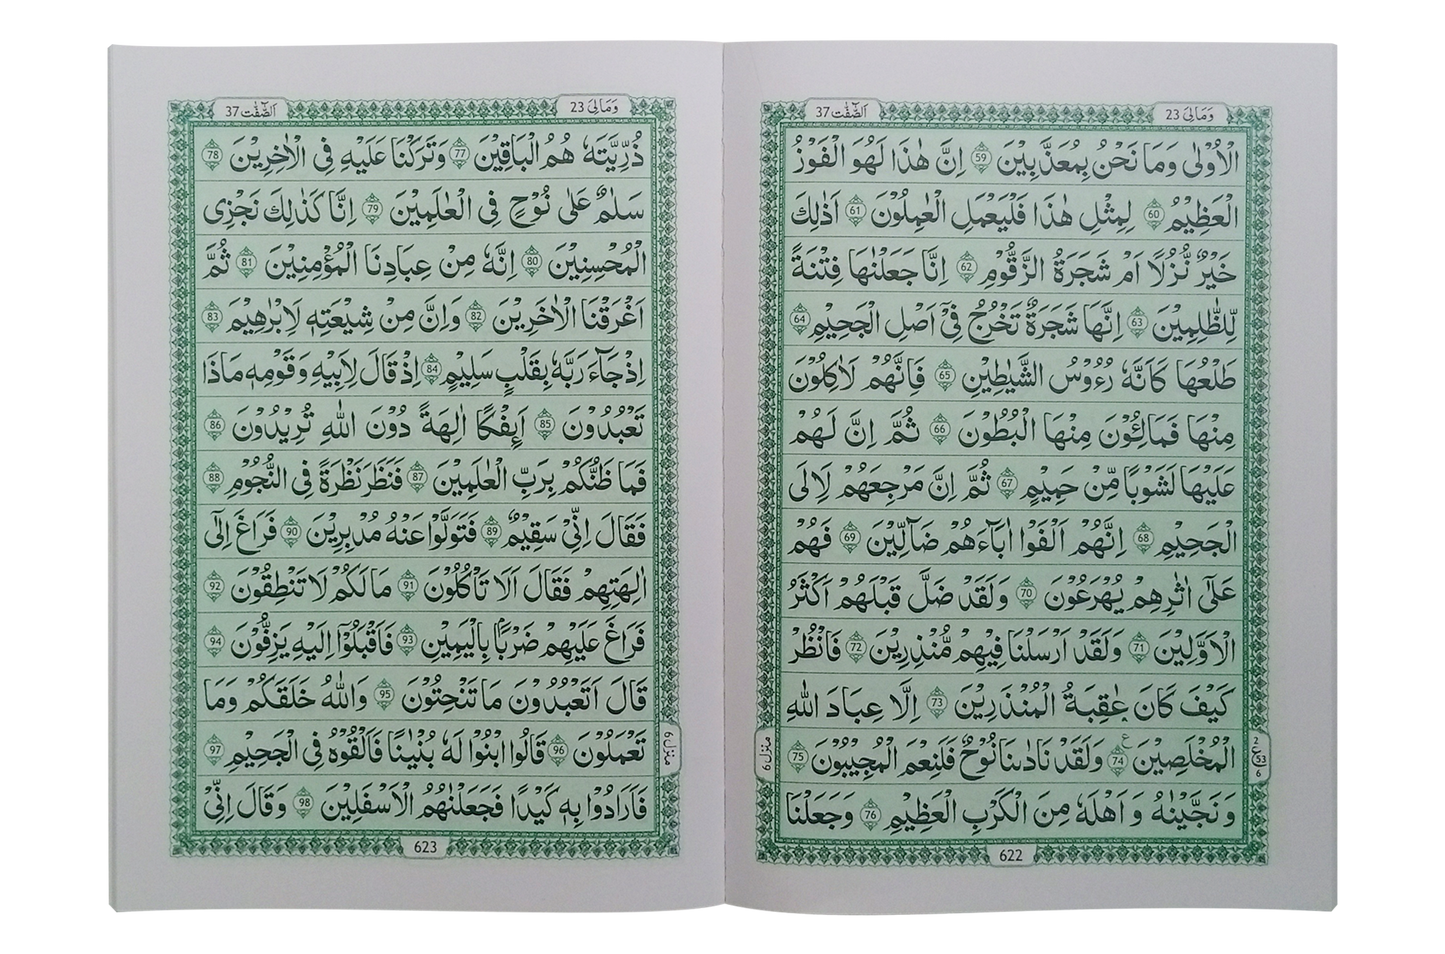 وَمَالِیَ 23
اَلصّٰٓفّٰت 37
الْاُوْلٰى وَمَا نَحْنُ بِمُعَذَّبِيْنَ 59 اِنَّ هٰذَا لَهُوَ الْفَوْزُ
الْعَظِيْمُ 60 لِمِثْلِ هٰذَا فَلْيَعْمَلِ الْعٰمِلُوْنَ 61 اَذٰلِكَ
خَيْرٌ نُّزُلًا اَمْ شَجَرَةُ الزَّقُّوْمِ 62 اِنَّا جَعَلْنٰهَا فِتْنَةً
لِّلظّٰلِمِيْنَ 63 اِنَّهَا شَجَرَةٌ تَخْرُجُ فِيْٓ اَصْلِ الْجَحِيْمِ 64
طَلْعُهَا كَاَنَّهٗ رُءُوْسُ الشَّيٰطِيْنِ 65 فَاِنَّهُمْ لَاٰكِلُوْنَ
مِنْهَا فَمَالِـُٔوْنَ مِنْهَا الْبُطُوْنَ 66 ثُمَّ اِنَّ لَهُمْ
عَلَيْهَا لَشَوْبًا مِّنْ حَمِيْمٍ 67 ثُمَّ اِنَّ مَرْجِعَهُمْ لَاِلَى
الْجَحِيْمِ 68 اِنَّهُمْ اَلْفَوْا اٰبَآءَهُمْ ضَآلِّيْنَ 69 فَهُمْ
عَلٰٓى اٰثٰرِهِمْ يُهْرَعُوْنَ 70 وَلَقَدْ ضَلَّ قَبْلَهُمْ اَكْثَرُ
الْاَوَّلِيْنَ 71 وَلَقَدْ اَرْسَلْنَا فِيْهِمْ مُّنْذِرِيْنَ 72 فَانْظُرْ
كَيْفَ كَانَ عَاقِبَةُ الْمُنْذَرِيْنَ 73 اِلَّا عِبَادَ اللّٰهِ
الْمُخْلَصِيْنَ 74 وَلَقَدْ نَادٰىنَا نُوْحٌ فَلَنِعْمَ الْمُجِيْبُوْنَ 75
وَنَجَّيْنٰهُ وَاَهْلَهٗ مِنَ الْكَرْبِ الْعَظِيْمِ 76 وَجَعَلْنَا
2
ع 53
6
منزل 6
622
وَمَالِیَ 23
اَلصّٰٓفّٰت 37
ذُرِّيَّتَهٗ هُمُ الْبَاقِيْنَ 77 وَتَرَكْنَا عَلَيْهِ فِى الْاٰخِرِيْنَ 78
سَلٰمٌ عَلٰى نُوْحٍ فِى الْعٰلَمِيْنَ 79 اِنَّا كَذٰلِكَ نَجْزِى
الْمُحْسِنِيْنَ 80 اِنَّهٗ مِنْ عِبَادِنَا الْمُؤْمِنِيْنَ 81 ثُمَّ
اَغْرَقْنَا الْاٰخَرِيْنَ 82 وَاِنَّ مِنْ شِيْعَتِهٖ لَاِبْرٰهِيْمَ 83
اِذْ جَآءَ رَبَّهٗ بِقَلْبٍ سَلِيْمٍ 84 اِذْ قَالَ لِاَبِيْهِ وَقَوْمِهٖ مَاذَا
تَعْبُدُوْنَ 85 اَىِٕفْكًا اٰلِهَةً دُوْنَ اللّٰهِ تُرِيْدُوْنَ 86
فَمَا ظَنُّكُمْ بِرَبِّ الْعٰلَمِيْنَ 87 فَنَظَرَ نَظْرَةً فِى النُّجُوْمِ 88
فَقَالَ اِنِّيْ سَقِيْمٌ 89 فَتَوَلَّوْا عَنْهُ مُدْبِرِيْنَ 90 فَرَاغَ اِلٰٓى
اٰلِهَتِهِمْ فَقَالَ اَلَا تَاْكُلُوْنَ 91 مَا لَكُمْ لَا تَنْطِقُوْنَ 92
فَرَاغَ عَلَيْهِمْ ضَرْبًۢا بِالْيَمِيْنِ 93 فَاَقْبَلُوْٓا اِلَيْهِ يَزِفُّوْنَ 94
قَالَ اَتَعْبُدُوْنَ مَا تَنْحِتُوْنَ 95 وَاللّٰهُ خَلَقَكُمْ وَمَا
تَعْمَلُوْنَ 96 قَالُوا ابْنُوْا لَهٗ بُنْيٰنًا فَاَلْقُوْهُ فِى الْجَحِيْمِ 97
فَاَرَادُوْا بِهٖ كَيْدًا فَجَعَلْنٰهُمُ الْاَسْفَلِيْنَ 98 وَقَالَ اِنِّيْ
منزل 6
623